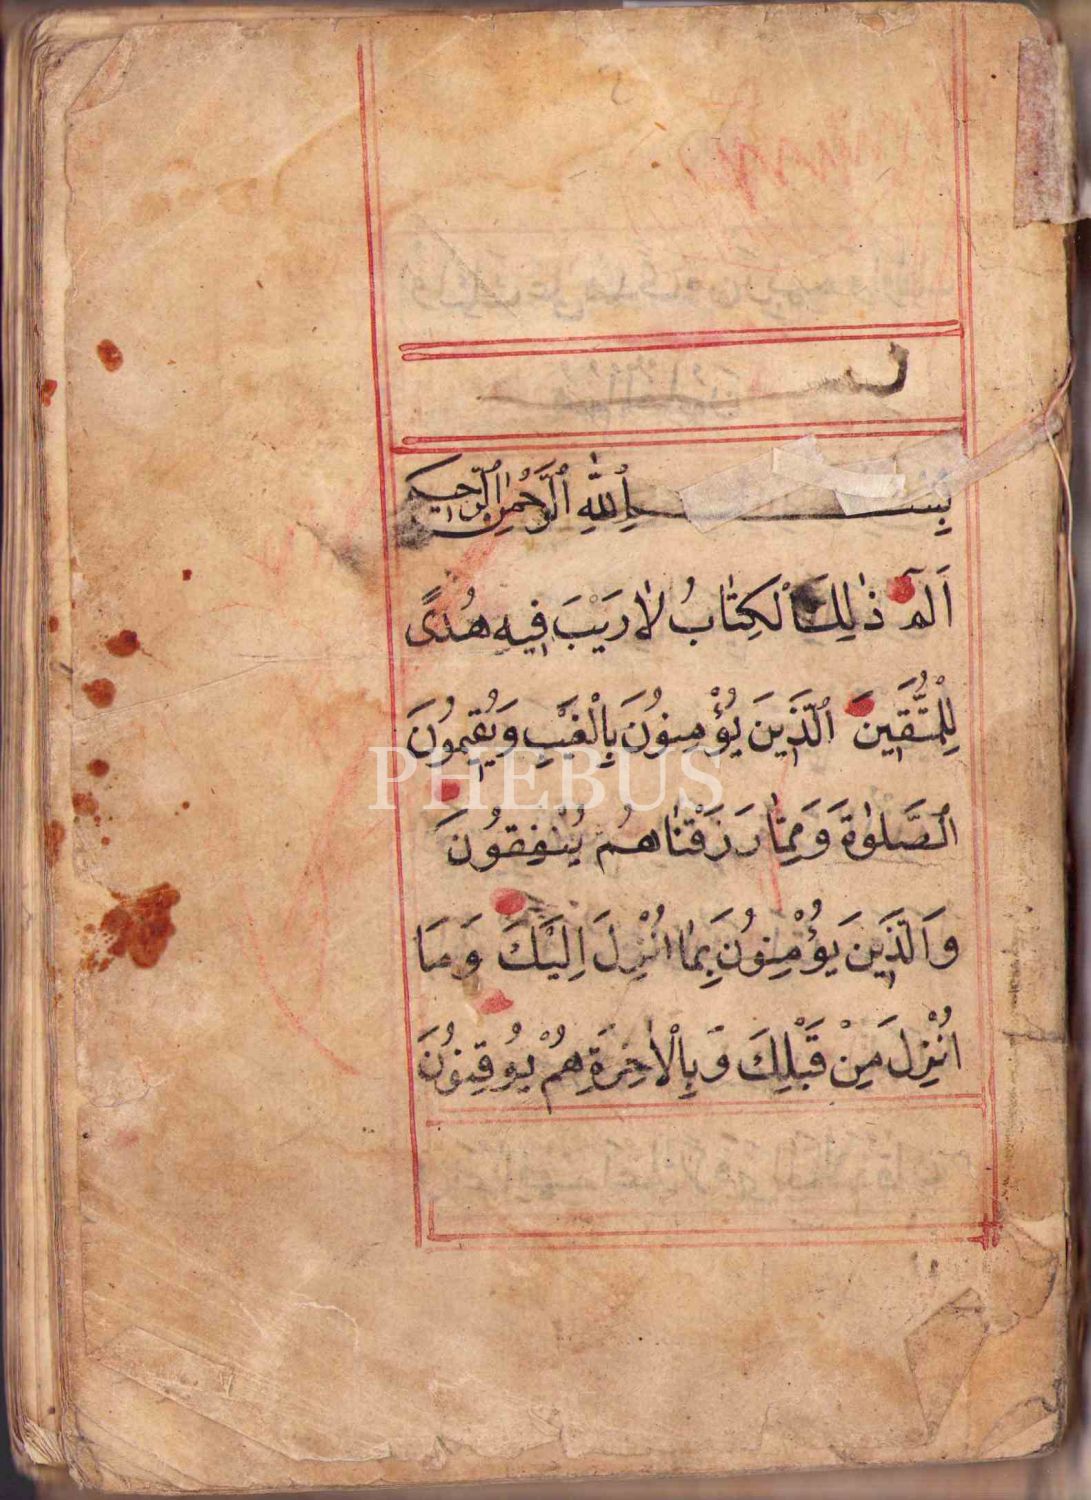 بِسْــــــمِ ٱللّٰهِ ٱلرَّحْمٰنِ ٱلرَّحِيمِ
اَلٓمٓ ذٰلِكَ ٱلْكِتٰابُ لٰا رَيْبَ فِيهِ هُدًى
لِلْمُتَّقِينَ ٱلَّذِينَ يُؤْمِنُونَ بِالْغَيْبِ وَيُقِيمُونَ
PHEBUS
ٱلصَّلوٰةَ وَمِمّٰا رَزَقْنٰاهُمْ يُنْفِقُونَ
وَالَّذِينَ يُؤْمِنُونَ بِمٰا اُنْزِلَ اِلَيْكَ وَمَا
اُنْزِلَ مِنْ قَبْلِكَ وَبِالْاٰخِرَةِ هُمْ يُوقِنُونَ